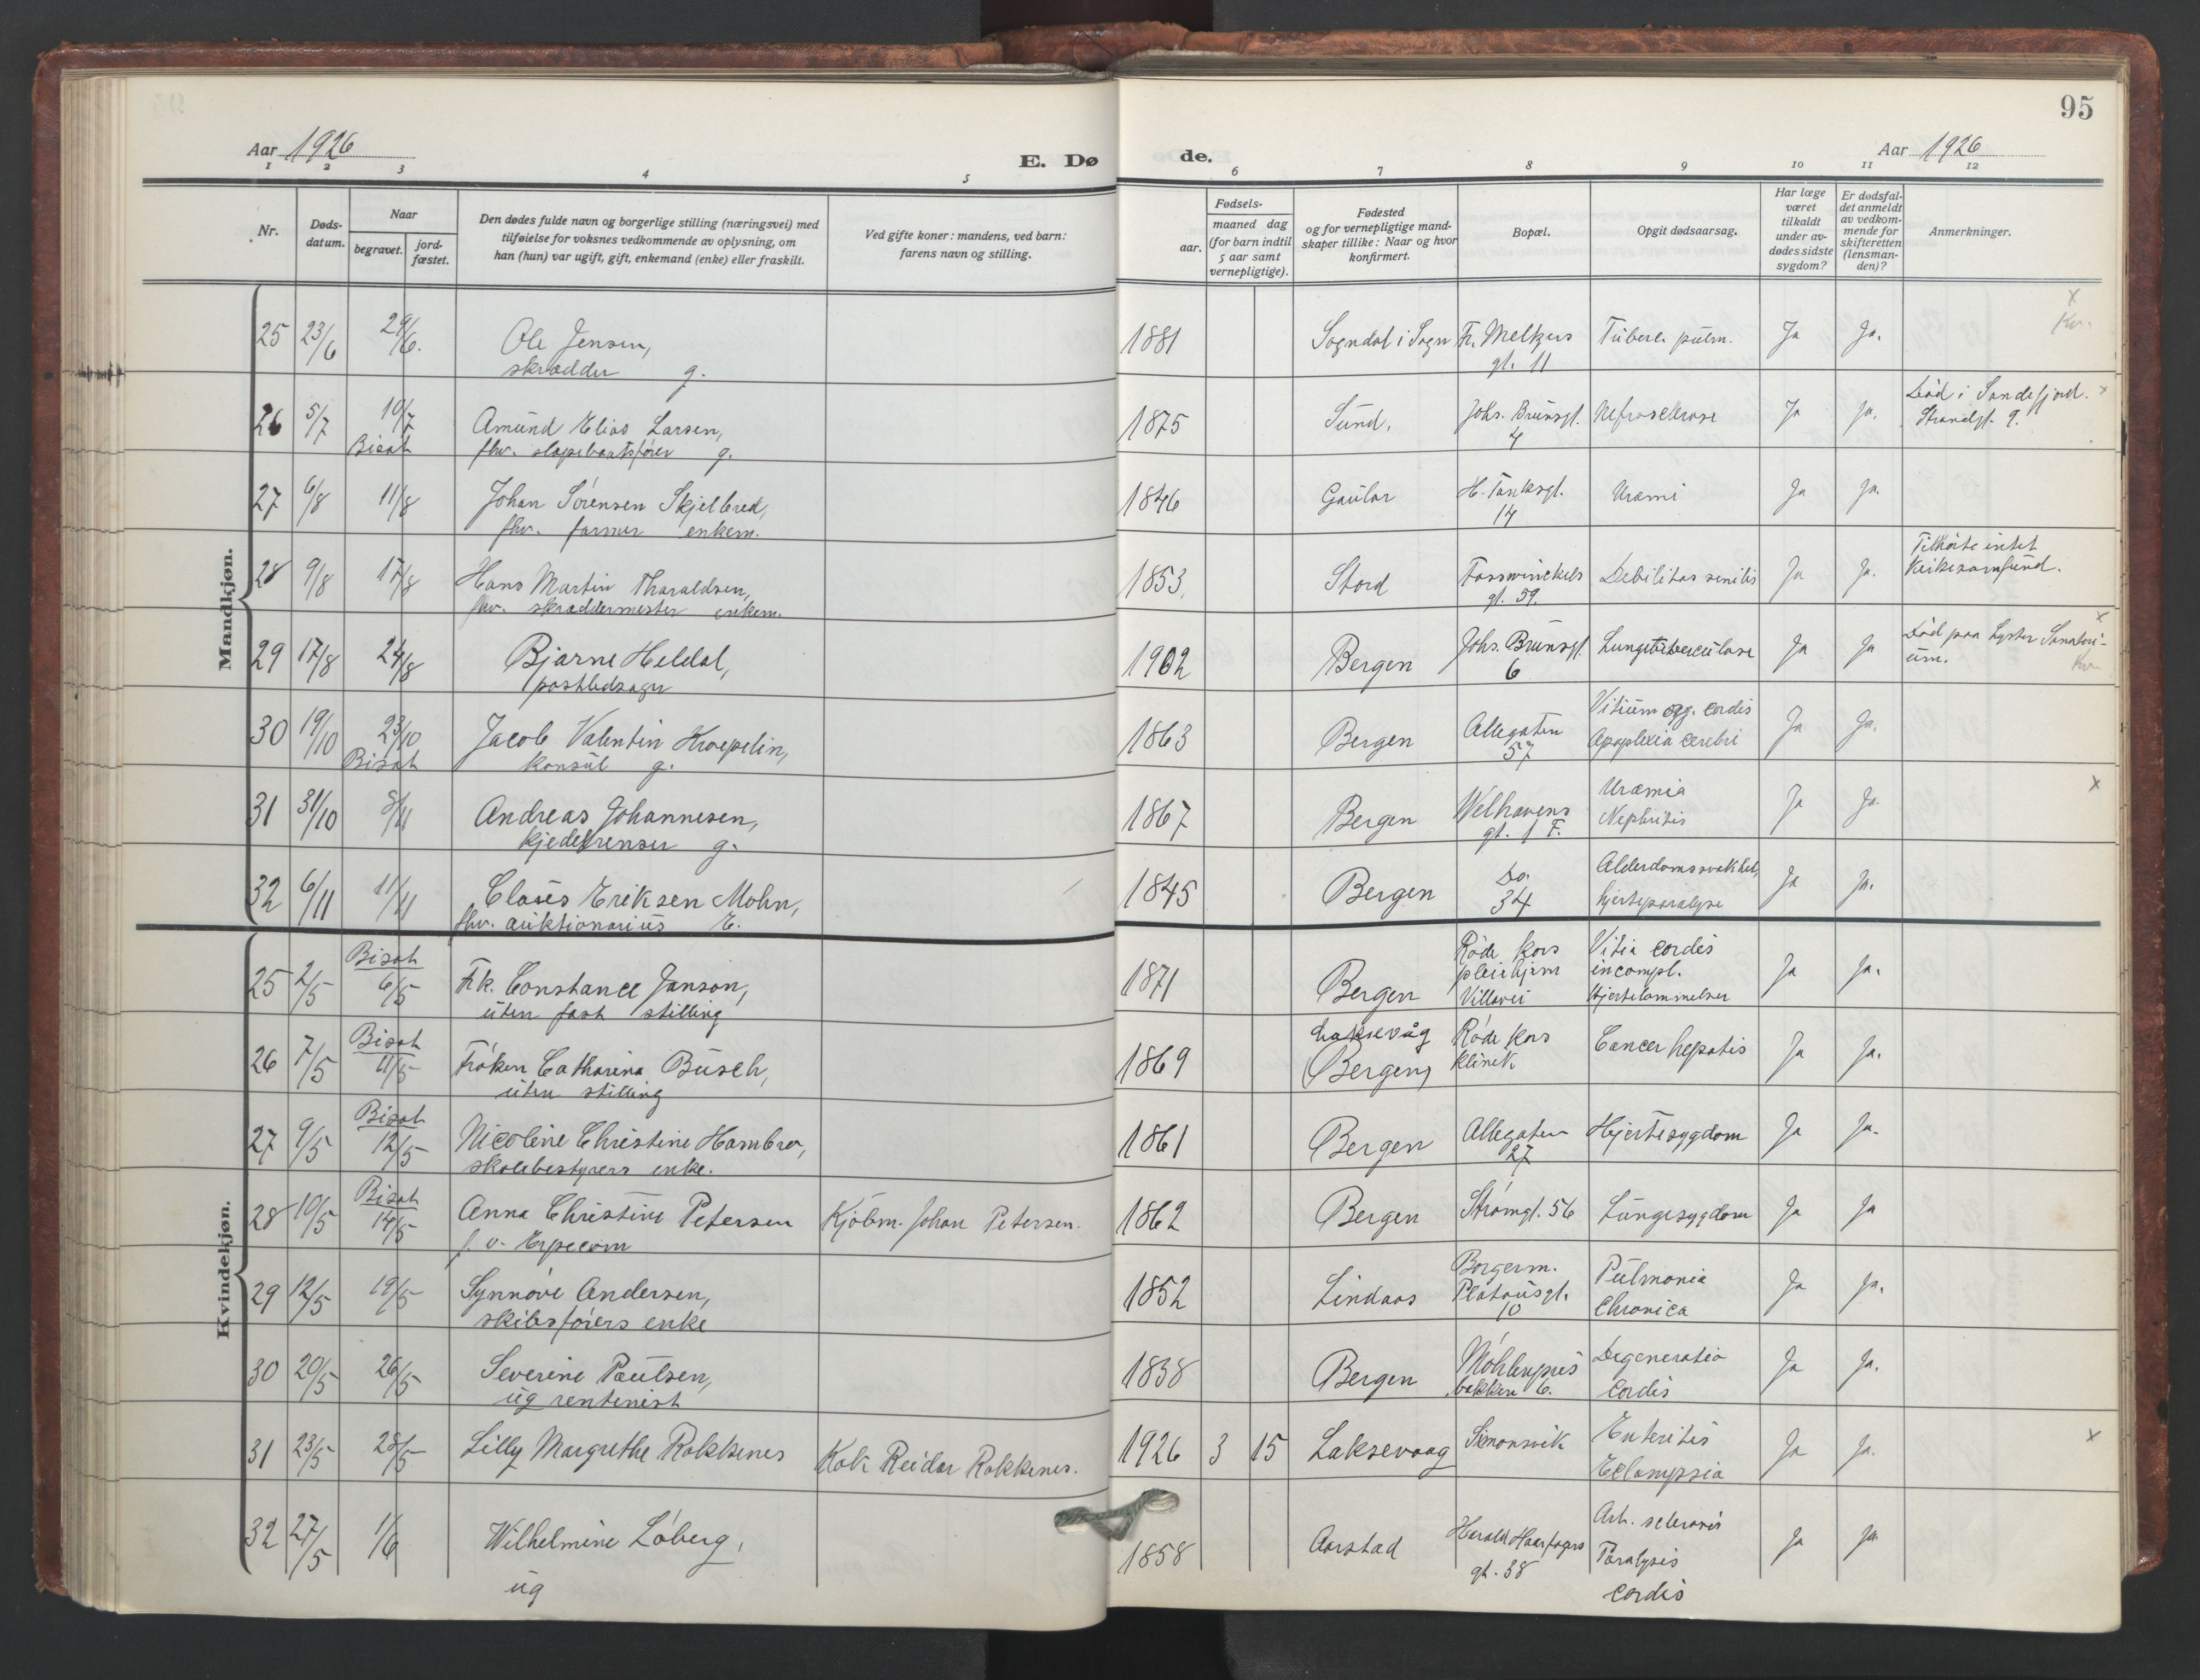 95
Aar 1926
E. Dø de.
Aar 1926
1 2 3 4 5 6 7 8 9 10 11 12
Nr.
Døds-
datum.
Naar
begravet.
jord-
fæstet.
Den dødes fulde navn og borgerlige stilling (næringsvei) med
tilføielse for voksnes vedkommende av oplysning, om
han (hun) var ugift, gift, enkemand (enke) eller fraskilt.
Ved gifte koner: mandens, ved barn:
farens navn og stilling.
Fødsels-
aar.
maaned dag
(for barn indtil
5 aar samt
vernepligtige).
Fødested
og for vernepligtige mand-
skaper tillike: Naar og hvor
konfirmert.
Bopæl.
Opgit dødsaarsag.
Har læge
været
tilkaldt
under av-
dødes sidste
sygdom?
Er dødsfal-
det anmeldt
av vedkom-
mende for
skifteretten
(lensman-
den)?
Anmerkninger.
Mandkjøn.
25 23/6 29/6. Ole Jensen, 1881 Sogndal i Sogn Fr. Meltzers Tuberc. pulm. Ja Ja. x
skrædder g. gt. 11
26 5/7 10/7 Amund Elias Larsen, 1875 Sund. Johs. Brunsgt. Nefrosklerose Ja Ja. Død i Sandefjord. x
Bisat fhv. slæpebaatsfører g. 4 Strandgt. 9.
27 6/8 11/8 Johan Sørensen Skjelbred, 1846 Gaular H. Tanksgt. Uræmi Ja Ja.
fhv. farmer enkem. 14
28 9/8 17/8 Hans Martin Tharaldsen, 1853. Stord Fosswinckels Debilitas senilis Ja Ja. Tilhørte intet
fhv. skræddermester enkem. gt. 59. kirkesamfund.
29 17/8 24/8 Bjarne Heldal, 1902 Bergen Johs. Brunsgt. Lungetuberculose Ja Ja Død paa Lyster Sanatori- x
postledsager 6 um.
30 19/10 23/10 Jacob Valentin Kroepelin, 1863 Bergen Allegaten Vitium org. cordis Ja Ja.
Bisat konsul g. 57 Apoplexia cerebri
31 31/10 8/11 Andreas Johannesen, 1867 Bergen Welhavens Uræmia Ja Ja. x
kjedelrenser g. gt. 1 F. Nephritis
32 6/11 11/11 Claus Eriksen Mohn, 1845 Bergen Do. Alderdomssvakhet, Ja Ja.
fhv. auktionarius E. 34 hjerteparalyse
Kvindekjøn.
25 2/5 Bisat 6/5 Frk. Constance Janson, 1871 Bergen Røde kors Vitia cordis Ja Ja.
uten fast stilling pleiehjem incompl.
Villavei Hjertelammelser
26 7/5 Bisat 11/5 Frøken Catharina Busch, 1869 Laksevåg Røde kors Cancer hepatis Ja Ja.
uten stilling (Bergen) klinik
27 9/5 Bisat 12/5 Nicoline Christine Hambro, 1861 Bergen Allegaten Hjertesygdom Ja Ja.
skolebestyrers enke. 27
28 10/5 Bisat 14/5 Anna Christine Petersen Kjøbm. Johan Petersen. 1862 Bergen Strømgt. 56 Lungesygdom Ja Ja
f. v. Erpecom
29 12/5 19/5 Synnøve Andersen, 1852 Lindaas Borgerm. Pulmonia Ja Ja.
skibsførers enke Platousgt. Chronica
10
30 20/5 26/5 Severine Paulsen, 1838 Bergen Møhlenpris Degeneratio Ja Ja.
ug rentenist bakken 6. Cordis
31 23/5 28/5 Lilly Margrethe Rokkenes Kok Reidar Rokkenes. 1926 3 15 Laksevaag Simonsvik Enteritis Ja Ja. x
Eclampsia
32 27/5 1/6 Wilhelmine Løberg, 1858 Aarstad Harald Haarfagres Art. sclerosis Ja Ja
ug gt. 38 Paralysis
cordis